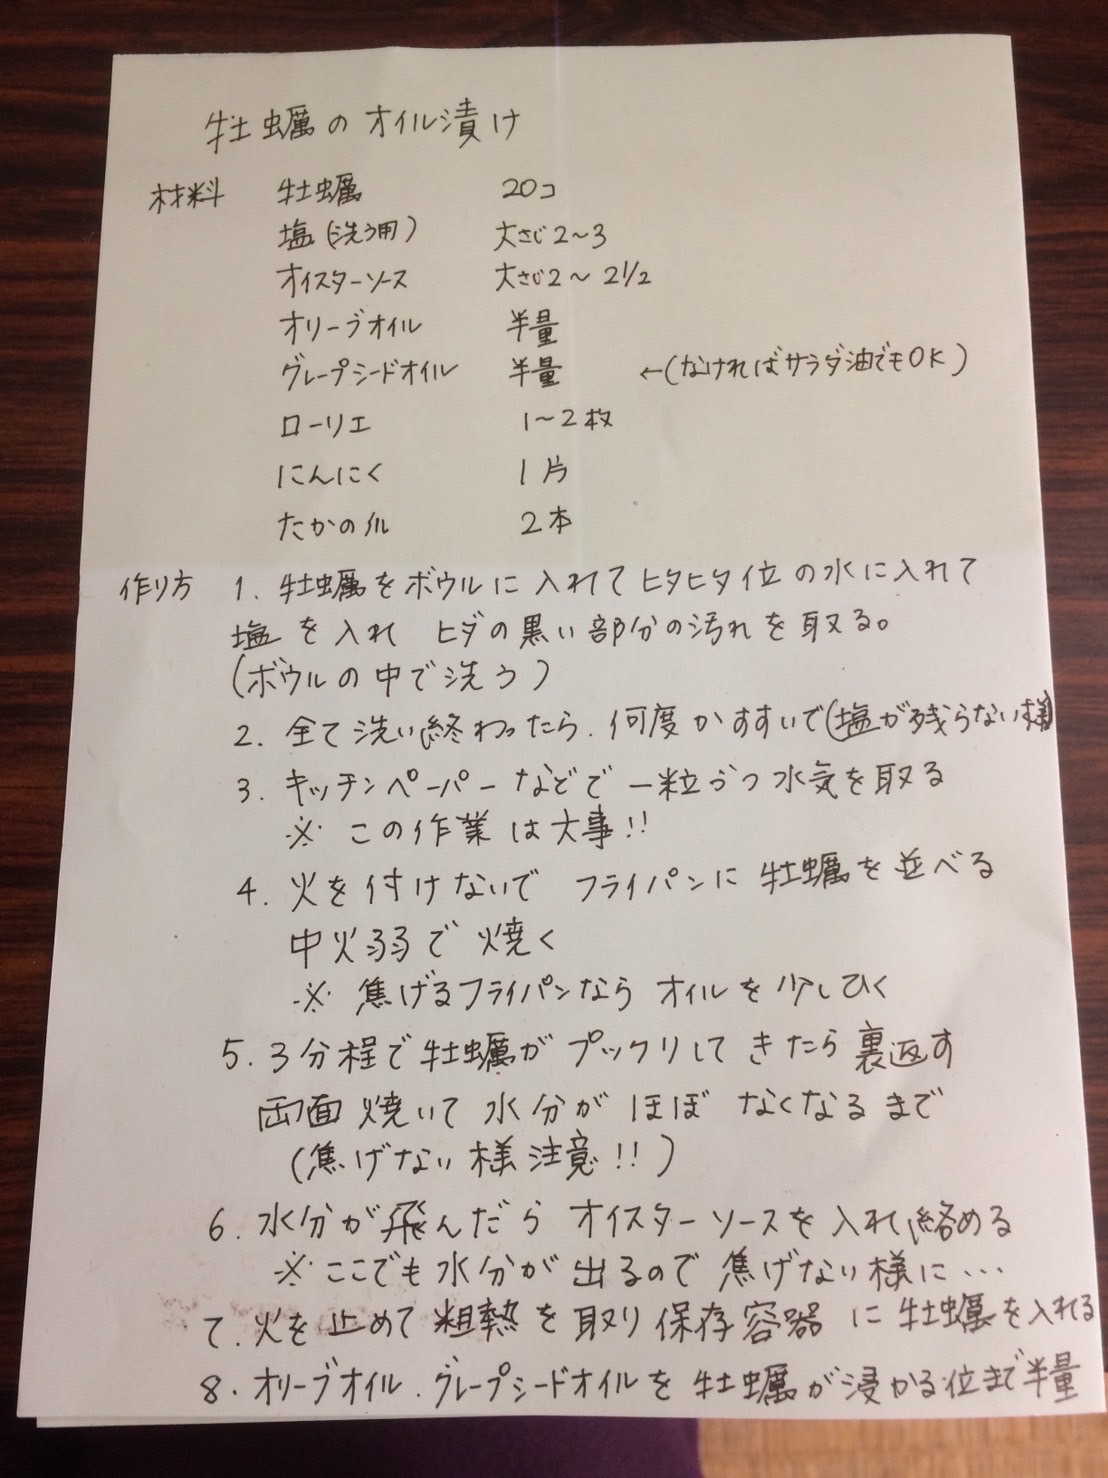 牡蠣のオイル漬け
材料 牡蠣 20コ
塩(洗う用) 大さじ2〜3
オイスターソース 大さじ2〜2½
オリーブオイル 半量
グレープシードオイル 半量 ←(なければサラダ油でもOK)
ローリエ 1〜2枚
にんにく 1片
たかのツル 2本
作り方 1. 牡蠣をボウルに入れてヒタヒタ位の水に入れて
塩を入れ ヒダの黒い部分の汚れを取る。
(ボウルの中で洗う)
2. 全て洗い終わったら、何度かすすいで(塩が残らない様)
3. キッチンペーパーなどで一粒づつ水気を取る
※ この作業は大事!!
4. 火を付けないで フライパンに牡蠣を並べる
中火弱で焼く
※ 焦げるフライパンなら オイルを少しひく
5. 3分程で牡蠣がプックリしてきたら裏返す
両面焼いて水分がほぼなくなるまで
(焦げない様注意!!)
6. 水分が飛んだら オイスターソースを入れ絡める
※ここでも水分が出るので焦げない様に…
7. 火を止めて粗熱を取り保存容器に牡蠣を入れる
8. オリーブオイル、グレープシードオイルを牡蠣が浸かる位まで半量